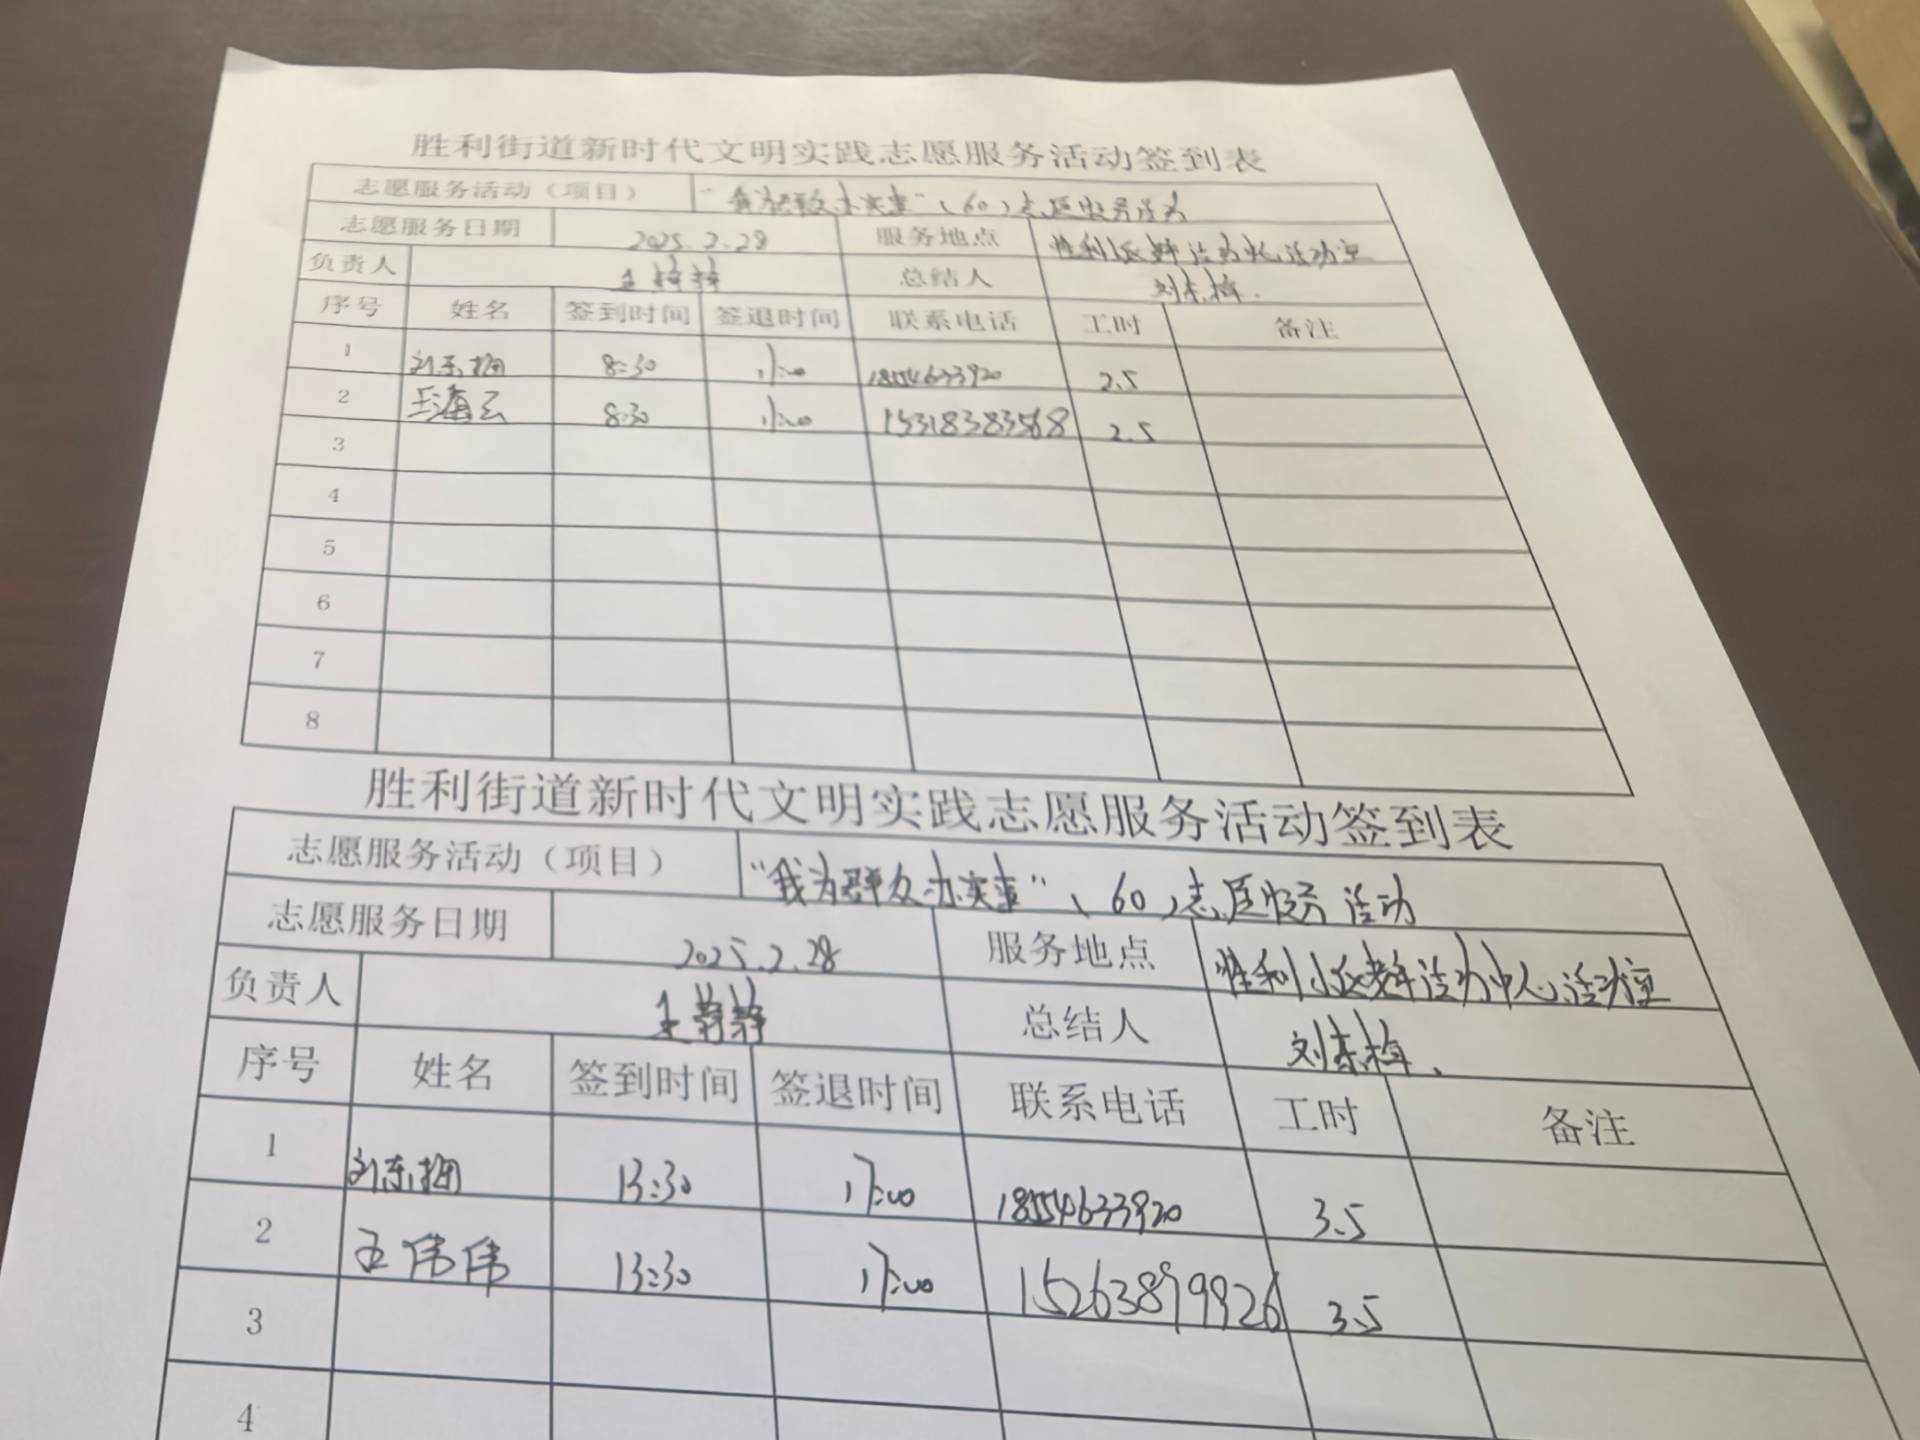 胜利街道新时代文明实践志愿服务活动签到表
志愿服务活动（项目） “我为群众办实事”（60）志愿服务活动
志愿服务日期 2025.2.28 服务地点 胜利小区老年活动中心活动室
负责人 王静静 总结人 刘东梅
序号 姓名 签到时间 签退时间 联系电话 工时 备注
1 刘东梅 8:30 11:00 18554633920 2.5
2 王海云 8:30 11:00 15318383568 2.5
3
4
5
6
7
8
胜利街道新时代文明实践志愿服务活动签到表
志愿服务活动（项目） “我为群众办实事”（60）志愿服务活动
志愿服务日期 2025.2.28 服务地点 胜利小区老年活动中心活动室
负责人 王静静 总结人 刘东梅
序号 姓名 签到时间 签退时间 联系电话 工时 备注
1 刘东梅 13:30 17:00 18554633920 3.5
2 王伟伟 13:30 17:00 15263899926 3.5
3
4